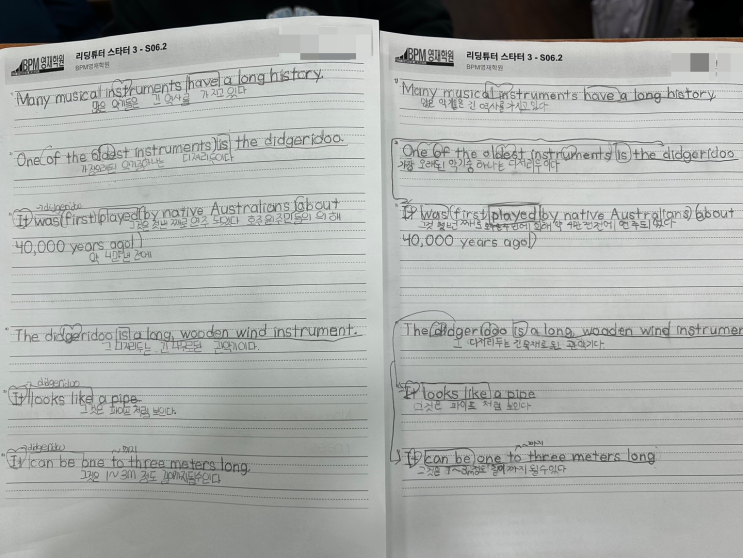 BPM 영재학원
리딩튜터 스타터 3 - S06.2
BPM영재학원
Many musical instruments have a long history.
많은 악기들은 긴 역사를 가지고 있다
One of the oldest instruments is the didgeridoo.
디저리두이다
→didgeridoo
It was first played by native Australians about
그것은 첫번째로 연주 되었다 호주 원주민들에 의해
40,000 years ago.
약 4만년 전에
The didgeridoo is a long, wooden wind instrument.
그 디저리두는 긴 관악기이다.
→didgeridoo
It looks like a pipe.
그것은 파이프 처럼 보인다.
→didgeridoo
~까지
It can be one to three meters long.
그것은 1~3m 정도
BPM 영재학원
리딩튜터 스타터 3 - S06.2
BPM영재학원
Many musical instruments have a long history.
많은 악기들은 긴 역사를 가지고 있다
One of the oldest instruments is the didgeridoo
가장 오래된 악기중 하나는 디저리두이다
It was first played by native Australians about
그것 첫번째로 약 4만년전에 연주되었다
40,000 years ago.
The didgeridoo is a long, wooden wind instrumen
그 디저리두는 긴 목재로 된 관악기다
It looks like a pipe
그것은 파이프 처럼 보인다
~까지
It can be one to three meters long
그것은 될수있다